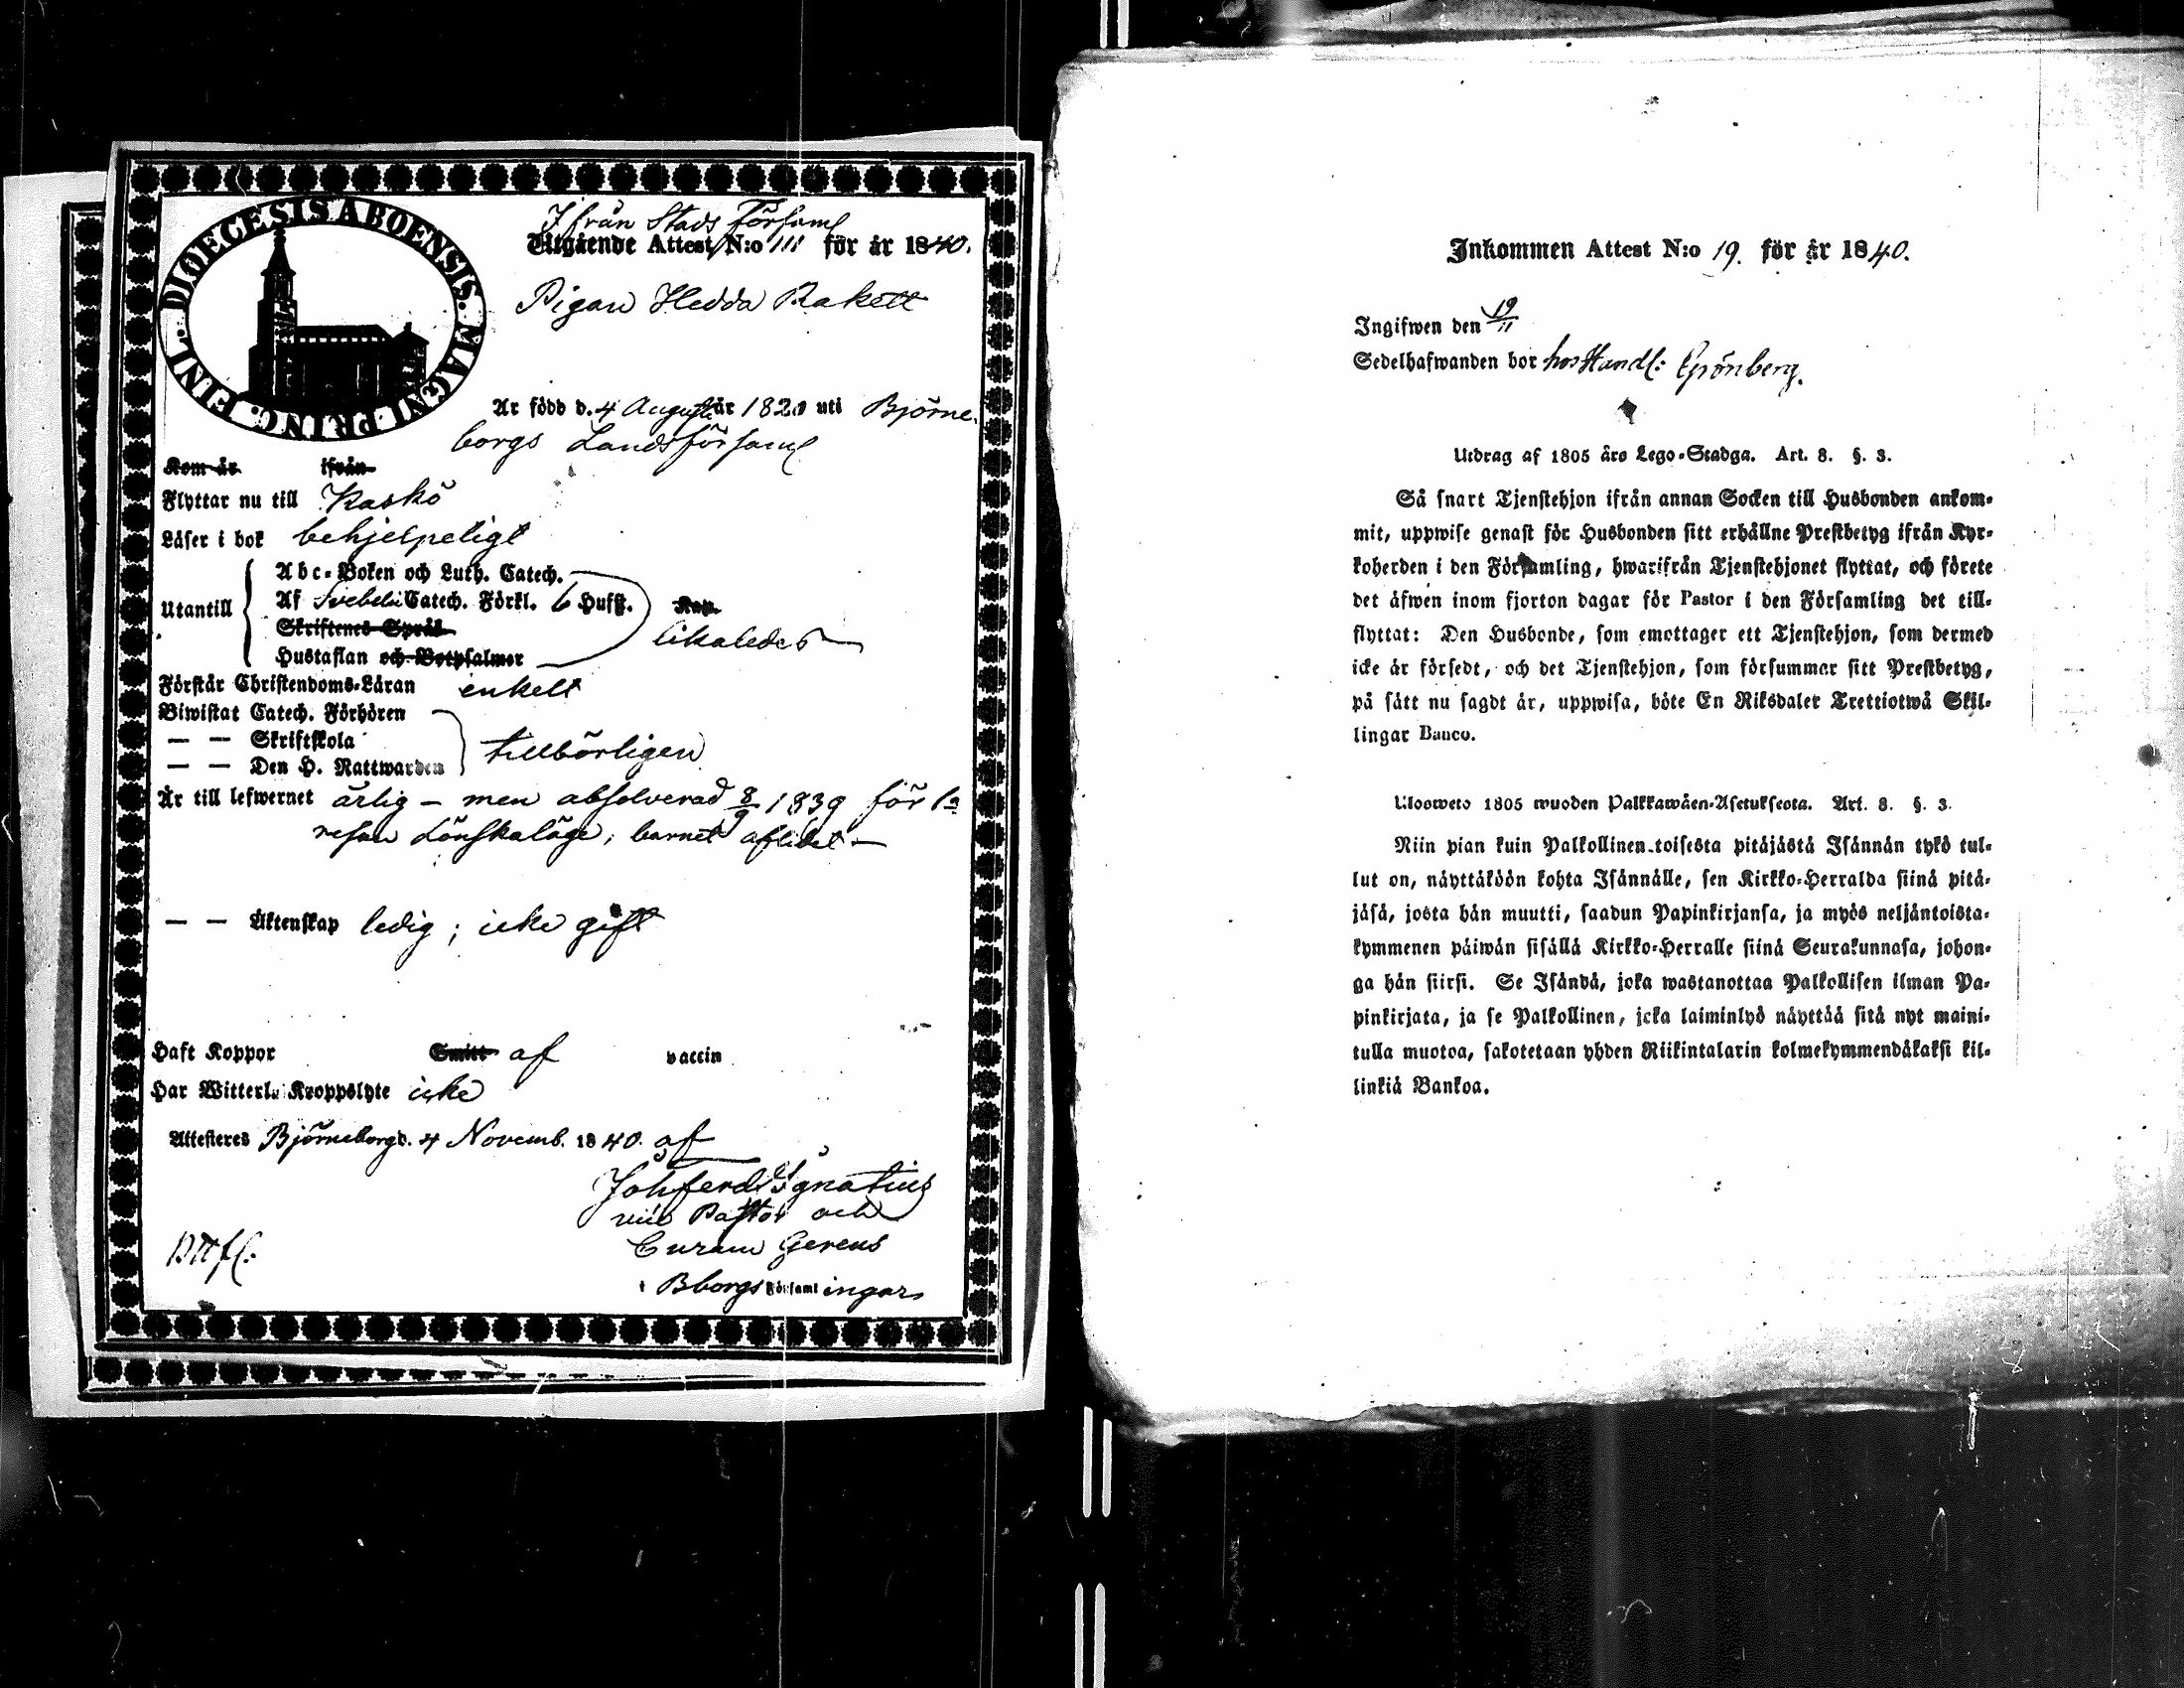 DIOECESIS ABOENSIS. MAGNI PRINC. FINL.
Ifrån Stads Församl
Utgående Attest N:o 111 för år 1840.
Pigan Hedda Rakett
Är född d. 4 Augusti år 1820 uti Björne-
borgs Landsförsaml
Kom år ifrån
Flyttar nu till Kaskö
Läser i bok behjelpeligt
Utantill
Abc-Boken och Luth. Catech.
Af Svebelii Catech. Förkl. 6 Hufst. Kap.
Skriftenes Språk
likaledes
Hustaflan och Botpsalmer
Förstår Christendoms-Läran enkelt
Biwistat Catech. Förhören
— — Skriftskola
tillbörligen
— — Den H. Nattwarden
Är till lefwernet ärlig — men absolverad 8/9 1839 för 1a
resan Lönskaläge; barnet aflidet —
— — Äktenskap ledig; icke gift
Haft Koppor Smitt af vaccin
Har Witterl. Kroppslyte icke
Attesteres Björneborg d. 4 Novemb. 1840. af
Joh Ferd Ignatius
vice Pastor och
Curam Gerens
i Bborgs Församlingar
Inkommen Attest N:o 19. för år 1840.
Ingifwen den 19/11
Sedelhafwanden bor hos Handl: Grönberg.
Utdrag af 1805 års Lego-Stadga. Art. 8. §. 3.
Så snart Tjenstehjon ifrån annan Socken till Husbonden ankom-
mit, uppwise genast för Husbonden sitt erhållne Prestbetyg ifrån Kyr-
koherden i den Församling, hwarifrån Tjenstehjonet flyttat, och förete
det äfwen inom fjorton dagar för Pastor i den Församling det till-
flyttat: Den Husbonde, som emottager ett Tjenstehjon, som dermed
icke är försedt, och det Tjenstehjon, som försummar sitt Prestbetyg,
på sätt nu sagdt är, uppwisa, böte En Riksdaler Trettiotwå Skil-
lingar Banco.
Ulosweto 1805 wuoden Palkkawäen-Asetuksesta. Art. 8. §. 3.
Niin pian kuin Palkollinen toisesta pitäjästä Isännän tykö tul-
lut on, näyttäköön kohta Isännälle, sen Kirkko-Herralda siinä pitä-
jäsä, josta hän muutti, saadun Papinkirjansa, ja myös neljäntoista-
kymmenen päiwän sisällä Kirkko-Herralle siinä Seurakunnasa, johon-
ga hän siirsi. Se Isändä, joka wastanottaa Palkollisen ilman Pa-
pinkirjata, ja se Palkollinen, joka laiminlyö näyttää sitä nyt maini-
tulla muotoa, sakotetaan yhden Riikintalarin kolmekymmendäkaksi kil-
linkiä Bankoa.